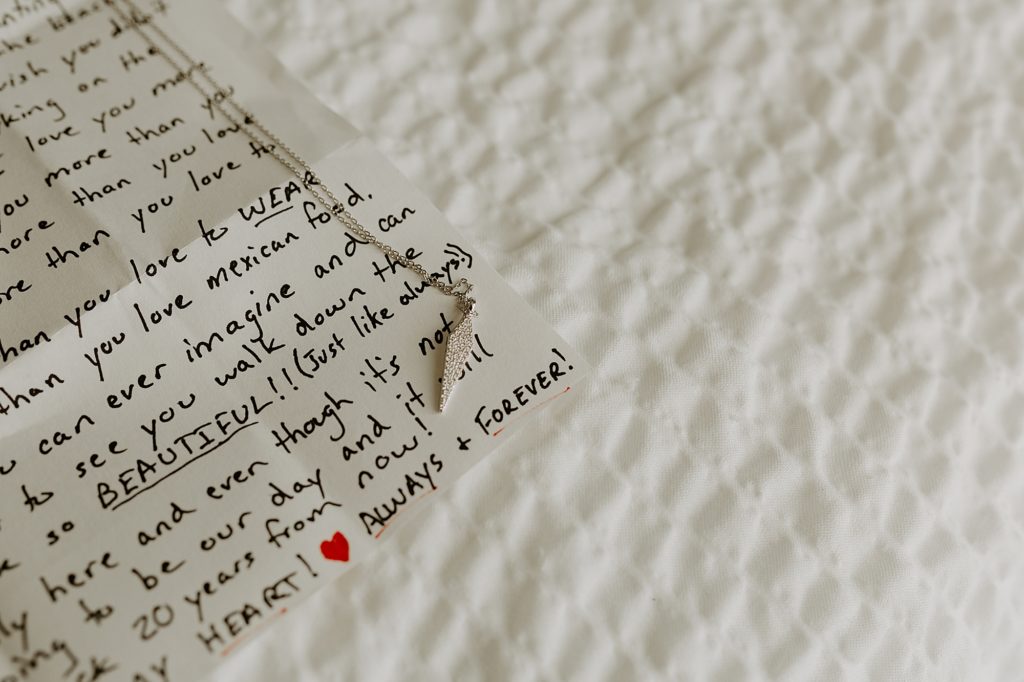 you
king on the
love you more
you more than you
more than you love
more than you love to
than you love to WEAR
than you love mexican food.
can ever imagine and can
to see you walk down the
so BEAUTIFUL!! (Just like always!!)
here and even though it's not
to be our day and it will
20 years from now!
MY HEART! ♥ ALWAYS + FOREVER!